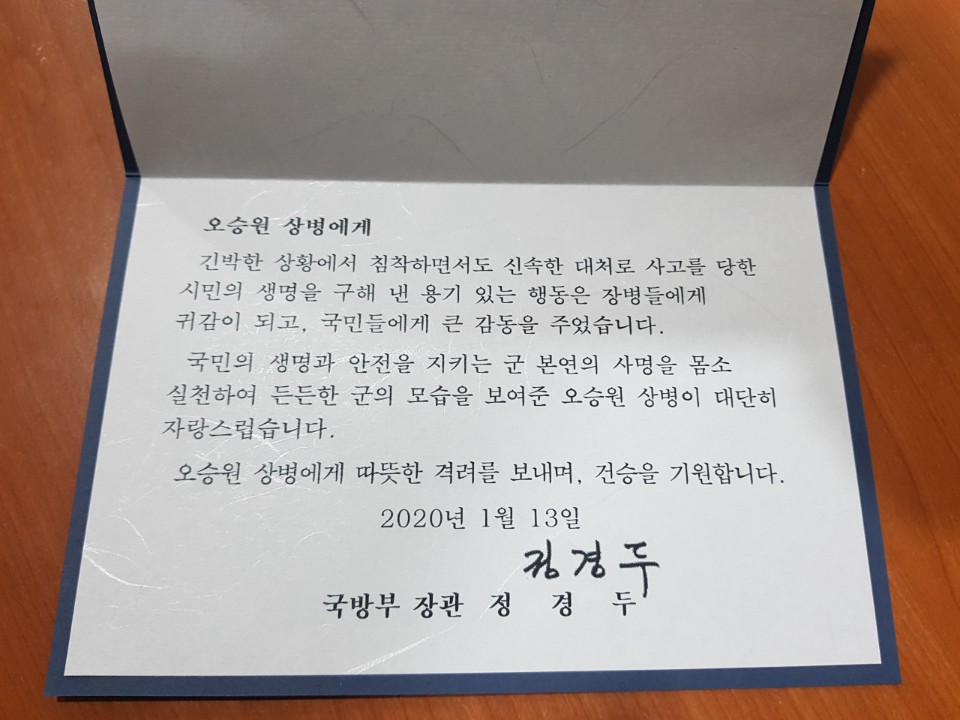 오승원 상병에게
긴박한 상황에서 침착하면서도 신속한 대처로 사고를 당한
시민의 생명을 구해 낸 용기 있는 행동은 장병들에게
귀감이 되고, 국민들에게 큰 감동을 주었습니다.
국민의 생명과 안전을 지키는 군 본연의 사명을 몸소
실천하여 든든한 군의 모습을 보여준 오승원 상병이 대단히
자랑스럽습니다.
오승원 상병에게 따뜻한 격려를 보내며, 건승을 기원합니다.
2020년 1월 13일
정경두
국방부 장관 정 경 두